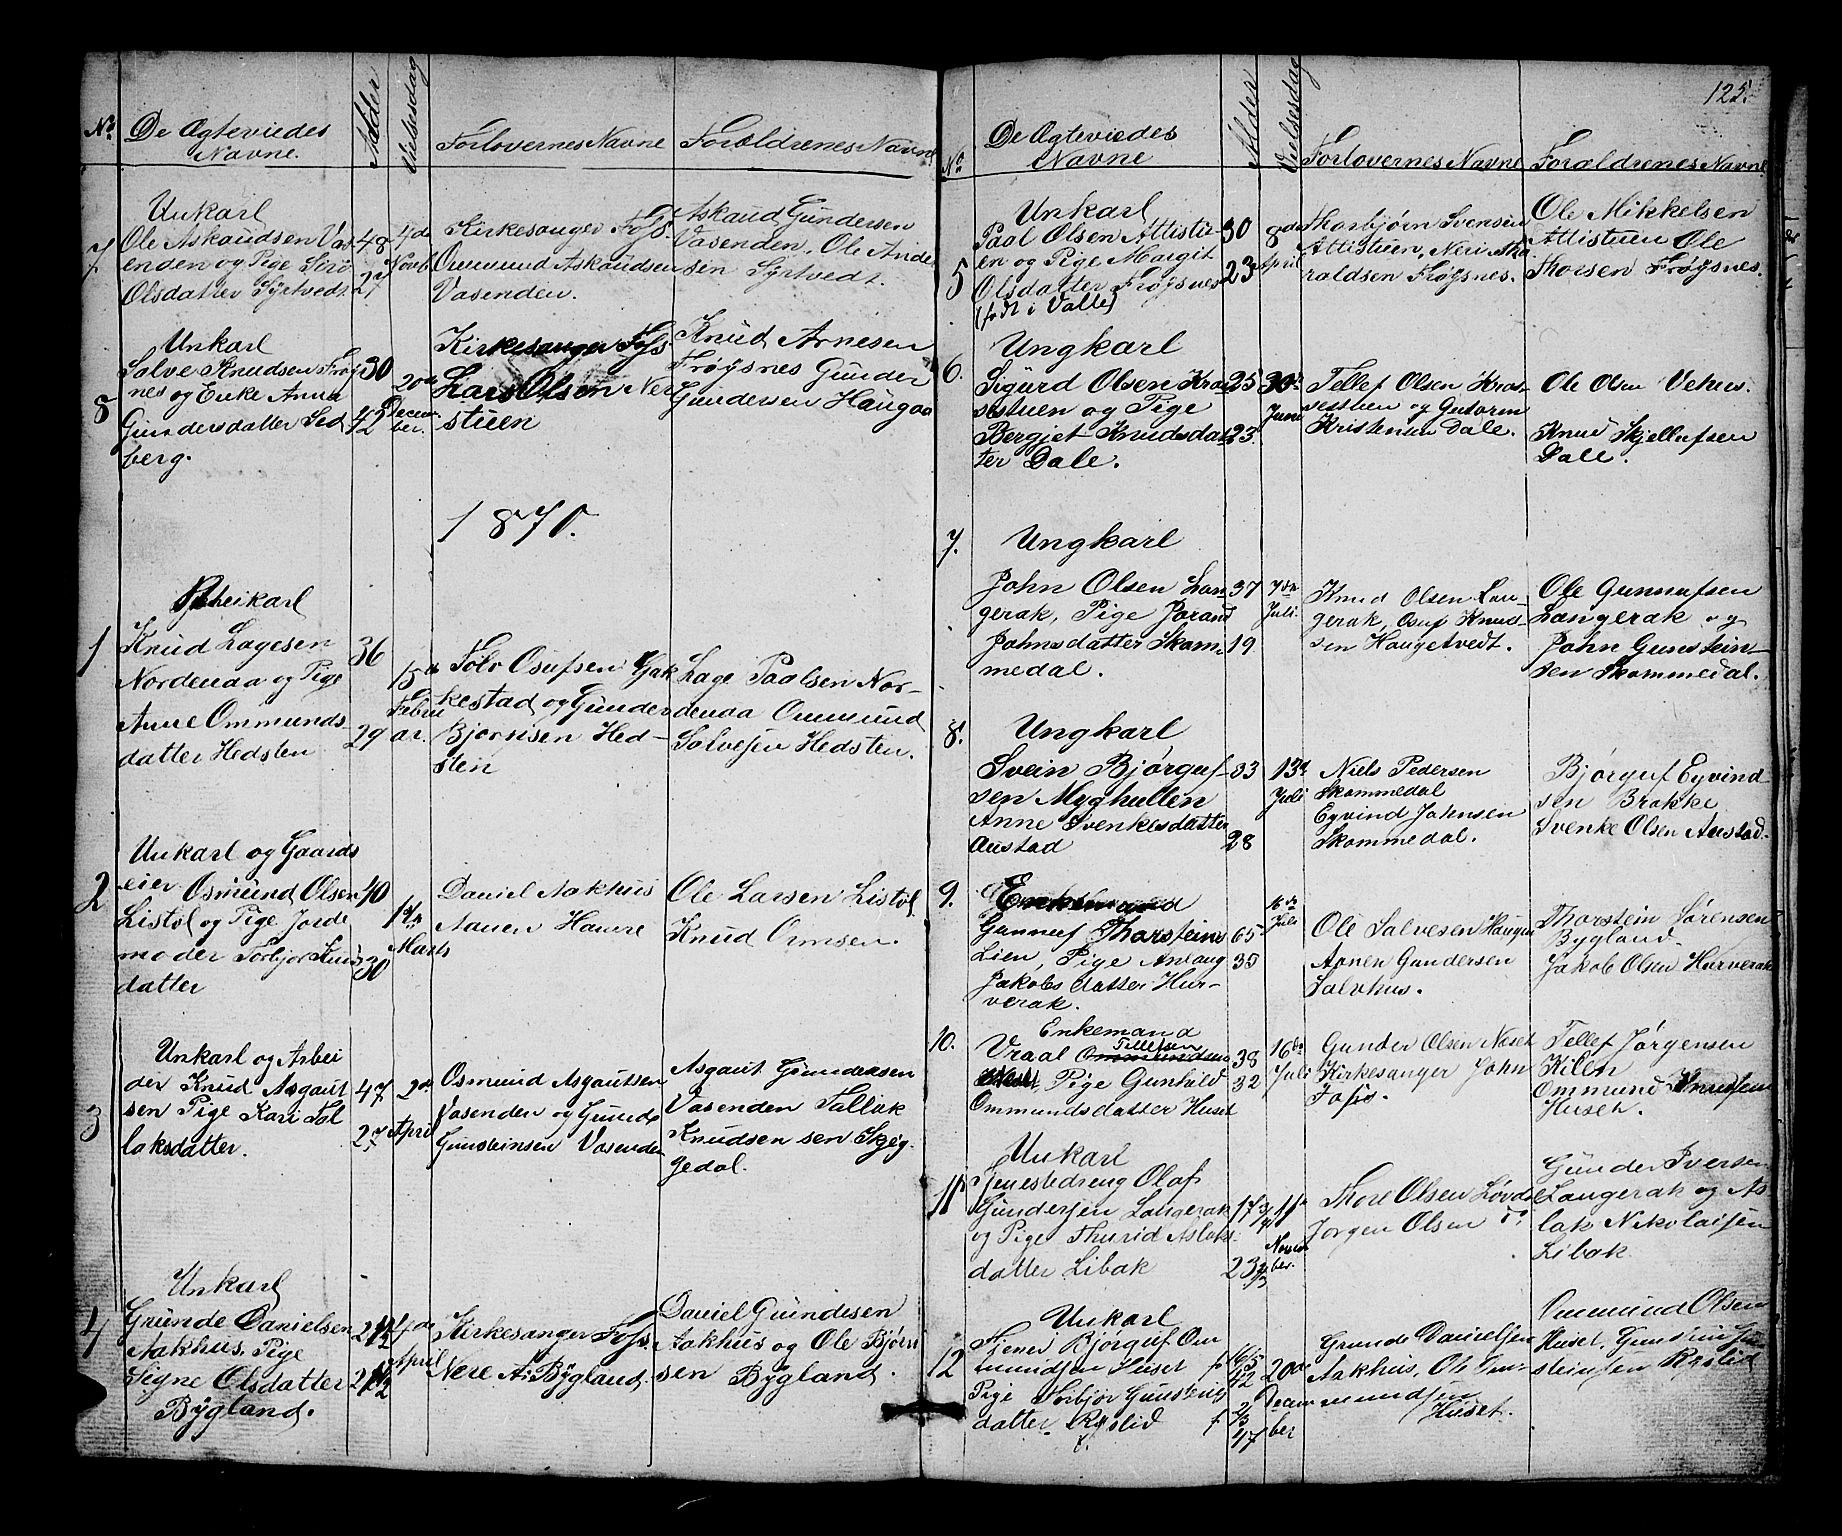 No
De Ægteviedes
Navne.
Alder
Vielsesdag
Forlovernes Navne
Forældrenes Navne
7
Unkarl
Ole Askaudsen Vas
enden og Pige Siri
Olsdatter Syrtvedt
48
27
4de
Novb
Kirkesanger Foss.
Ommund Askaudsen
Vasenden.
Askaud Gundersen
Vasenden, Ole Ande
sen Syrtvedt.
8
Unkarl
Salve Knudsen Frøy
nes og Enke Anna
Gundersdatter Sed
berg.
30
42
20de
Decem
ber.
Kirkesanger Foss
Lars Olsen Ner
stuen
Knud Arnesen
Frøysnes Gunder
Gundersen Haugaa
1870.
1
Knud Lagesen
Nordenaa og Pige
Anne Ommunds
datter Hedsten
36
29
15de
Febru
ar.
Tolv Osufsen Gjak
kestad og Gunder
Bjornsen Hed-
sten
Lage Paalsen Nor-
denaa Ommund
Salvesen Hedsten.
2
Unkarl og Gaards
eier Osmund Olsen
Listøl og Pige Jorde
moder Torbjør Knuds
datter
40
30
1ste
Marts
Daniel Aakhus
Aanen Hamre
Ole Larsen Listøl
Knud Ormsen.
3
Unkarl og Arbei
der Knud Asgaut
sen Pige Kari Tol
laksdatter.
47
27
2de
April
Osmund Asgautsen
Vasenden og Gunder
Gunsteinsen Vasenden
Asgaut Gundersen
Vasenden Tallak
Knudsen sen Skjeg-
gedal.
4
Unkarl
Grunde Danielsen
Aakhus, Pige
Signe Olsdatter
Bygland.
4de
April
Kirkesanger Foss.
Nere A. Bygland.
Daniel Grundesen
Aakhus og Ole Bjørn
sen Bygland.
125.
No
De Ægteviedes
Navne
Alder
Vielsesdag
Forlovernes Navne
Forældrenes Navne
5
Unkarl
Paal Olsen Attistu-
en og Pige Margit
Olsdatter Frøysnes
(født i Valle)
30
23
8de
April
Thorbjørn Svensen
Attistuen, Neri Tha
raldsen Frøysnes.
Ole Mikkelsen
Attistuen Ole
Thorsen Frøysnes.
6.
Ungkarl
Sigurd Olsen Kro
sestuen og Pige
Bergjet Knudsdat
ter Dale.
25
23.
30te
Juni
Tellef Olsen Kros
sestuen og Gutorm
Kristensen Dale.
Ole Olsen Vehus.
Knud Skjellufsen
Dale.
7.
Ungkarl
John Olsen Lan
gerak, Pige Jorand
Johnsdatter Skom-
medal.
37
19
7de
Juli.
Knud Olsen Lan-
gerak, Osuf Knud-
sen Haugetvedt.
Ole Gunnufsen
Langerak og
John Gunstein-
sen Skommedal.
8.
Ungkarl
Svein Bjørguf-
sen Myghulten
Anne Svenkesdatter
Austad
33
28
13de
Juli
Niels Pedersen
Skommedal
Eyvind Johnsen
Skommedal.
Bjørguf Eyvind-
sen Brokke
Svenke Olsen Austad.
9.
Enkemand
Gunnuf Thorsteins
Lien, Pige Anlaug
Jakobsdatter Hur-
verak.
65
35
16de
Juli
Ole Salvesen Haugen
Aanen Gundersen
Salvhus.
Thorstein Sørensen
Bygland
Jakob Olsen Horverak
10.
Enkemand
Vraal Ommundsen
Tellefsen
Neset, Pige Gunhild
Ommundsdatter Huset
38
32
16de
Juli
Gunder Olsen Neset
Kirkesanger John
Foss.
Tellef Jørgensen
Kilen
Ommund Knudsen
Huset.
11
Unkarl
Tjenestedreng Olaf
Gundersen Langerak
og Pige Thurid Aslaks-
datter Libak
11te
Novem
ber.
Thore Olsen Løvdal
Jørgen Olsen do.
Gunder Iversen
Langerak og As-
lak Nikolaisen
Libak
12
Unkarl
Tjener Bjørguf Om
mundsen Huset f.
Pige Torbjør Gunsteins
datter Rysled f
20de
Decem
ber
Grunde Danielsen
Aakhus, Ole Om-
mundsen
Huset.
Ommund Olsen
Huset, Gunstein Gun
steinsen Rysled